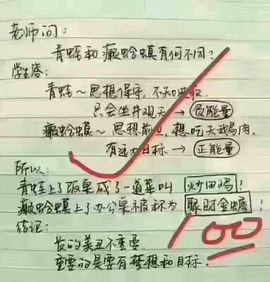 老师问：
青蛙和癞蛤蟆有何不同？
学生答：
青蛙～思想保守，不知进取
只会坐井观天→负能量
癞蛤蟆～思想前卫，想吃天鹅肉
有远大目标→正能量
所以：
青蛙上了饭桌成了一道菜叫炒田鸡！
癞蛤蟆上了办公桌被称为聚财金蟾！
结论：
长的美丑不重要
重要的是要有梦想和目标。
100